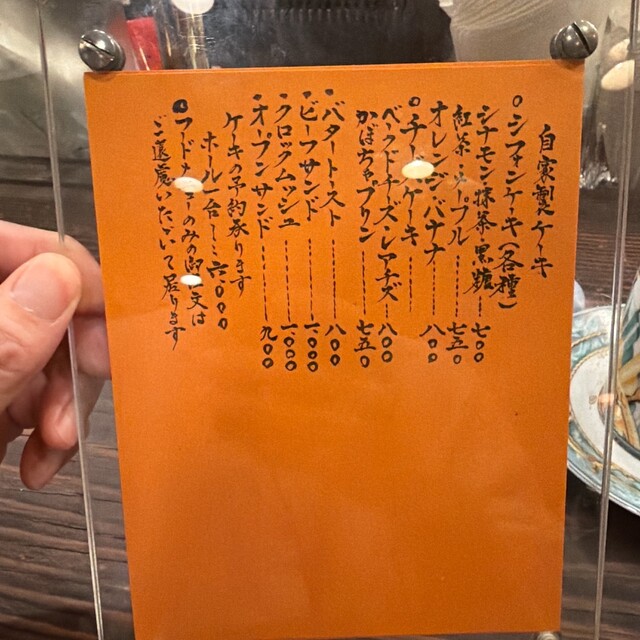 自家製ケーキ
○シフォンケーキ(各種)
シナモン抹茶黒糖 七〇〇
紅茶 ープル 七五〇
オレンジバナナ 八〇〇
○チー ケーキ
ベークドチーズレアチーズ 八〇〇
かぼちゃプリン 七五〇
・バタートースト 八〇〇
・ビーフサンド 一〇〇〇
・クロックムッシュ 一〇〇〇
・オープンサンド 九〇〇
ケーキの予約承ります
ホール一台 六〇〇〇
○フード ーのみの御 文は
ご遠慮いただいて居ります